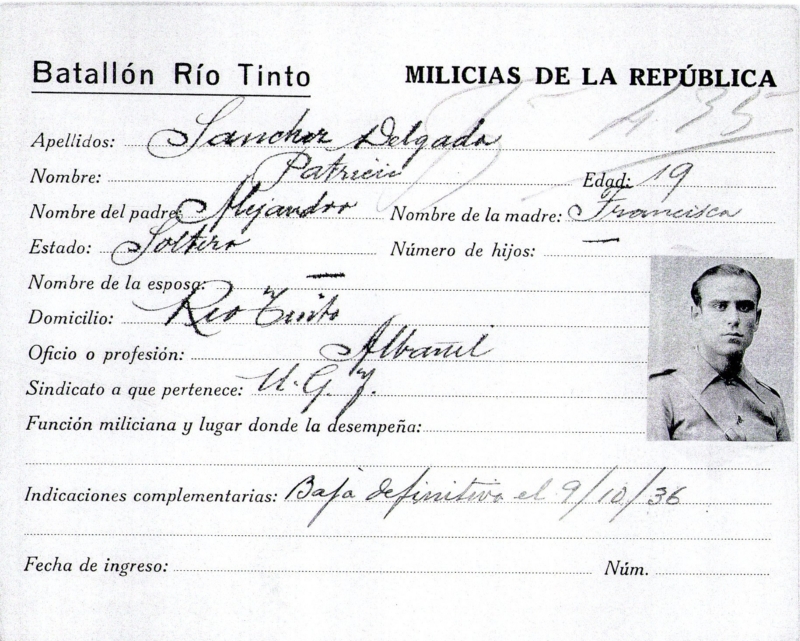 Batallón Río Tinto MILICIAS DE LA REPÚBLICA
435
Apellidos: Sanchez Delgado
Nombre: Patricio Edad: 19
Nombre del padre: Alejandro Nombre de la madre: Francisca
Estado: Soltero Número de hijos: —
Nombre de la esposa: —
Domicilio: Rio Tinto
Oficio o profesión: Albañil
Sindicato a que pertenece: U.G.T.
Función miliciana y lugar donde la desempeña:
Indicaciones complementarias: Baja definitiva el 9/10/36
Fecha de ingreso: Núm.